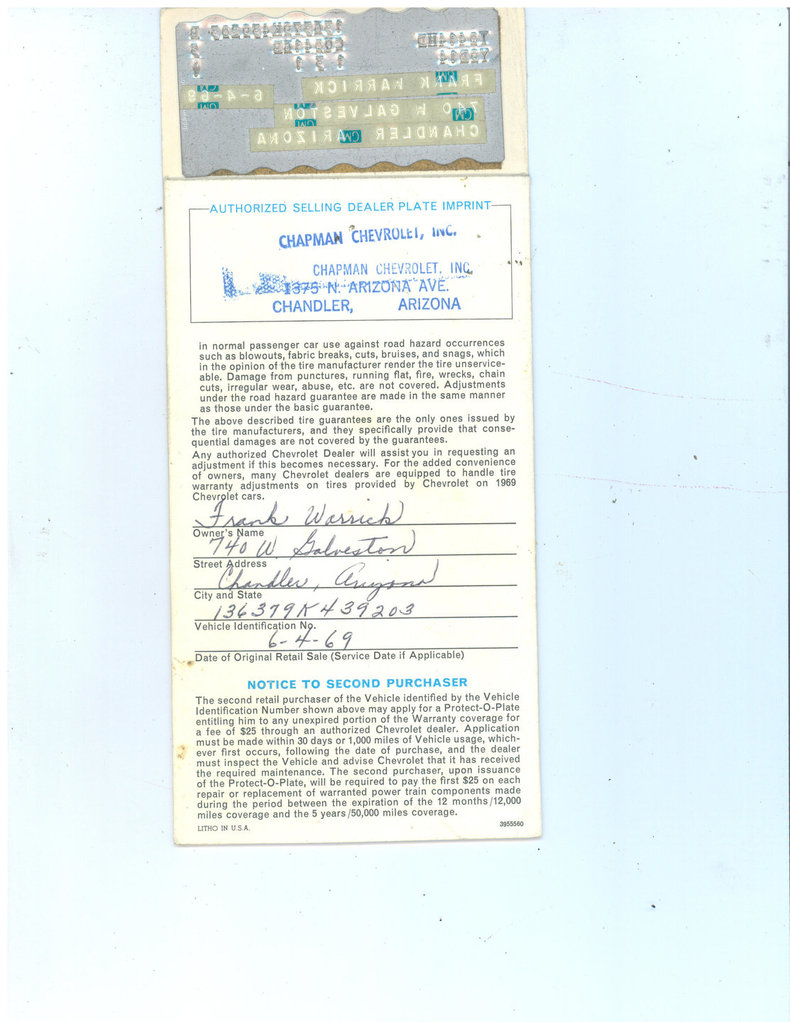 FRANK WARRICK 6-4-69
740 W GALVESTON
CHANDLER ARIZONA
GM
AUTHORIZED SELLING DEALER PLATE IMPRINT
CHAPMAN CHEVROLET, INC.
CHAPMAN CHEVROLET, INC.
1375 N. ARIZONA AVE.
CHANDLER, ARIZONA
in normal passenger car use against road hazard occurrences
such as blowouts, fabric breaks, cuts, bruises, and snags, which
in the opinion of the tire manufacturer render the tire unservice-
able. Damage from punctures, running flat, fire, wrecks, chain
cuts, irregular wear, abuse, etc. are not covered. Adjustments
under the road hazard guarantee are made in the same manner
as those under the basic guarantee.
The above described tire guarantees are the only ones issued by
the tire manufacturers, and they specifically provide that conse-
quential damages are not covered by the guarantees.
Any authorized Chevrolet Dealer will assist you in requesting an
adjustment if this becomes necessary. For the added convenience
of owners, many Chevrolet dealers are equipped to handle tire
warranty adjustments on tires provided by Chevrolet on 1969
Chevrolet cars.
Frank Warrick
Owner's Name
740 W. Galveston
Street Address
Chandler, Arizona
City and State
136379K439203
Vehicle Identification No.
6-4-69
Date of Original Retail Sale (Service Date if Applicable)
NOTICE TO SECOND PURCHASER
The second retail purchaser of the Vehicle identified by the Vehicle
Identification Number shown above may apply for a Protect-O-Plate
entitling him to any unexpired portion of the Warranty coverage for
a fee of $25 through an authorized Chevrolet dealer. Application
must be made within 30 days or 1,000 miles of Vehicle usage, which-
ever first occurs, following the date of purchase, and the dealer
must inspect the Vehicle and advise Chevrolet that it has received
the required maintenance. The second purchaser, upon issuance
of the Protect-O-Plate, will be required to pay the first $25 on each
repair or replacement of warranted power train components made
during the period between the expiration of the 12 months/12,000
miles coverage and the 5 years/50,000 miles coverage.
LITHO IN U.S.A. 3955560